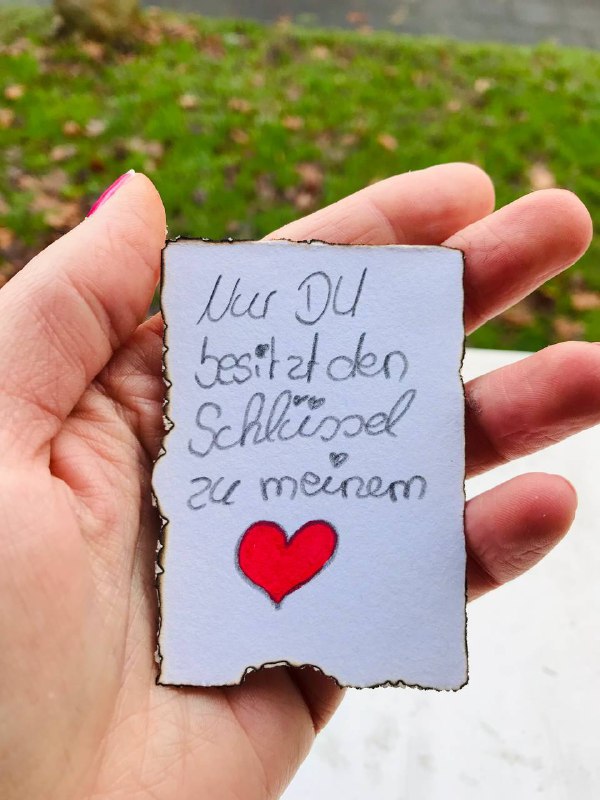 Nur DU
besitzt den
Schlüssel
zu meinem